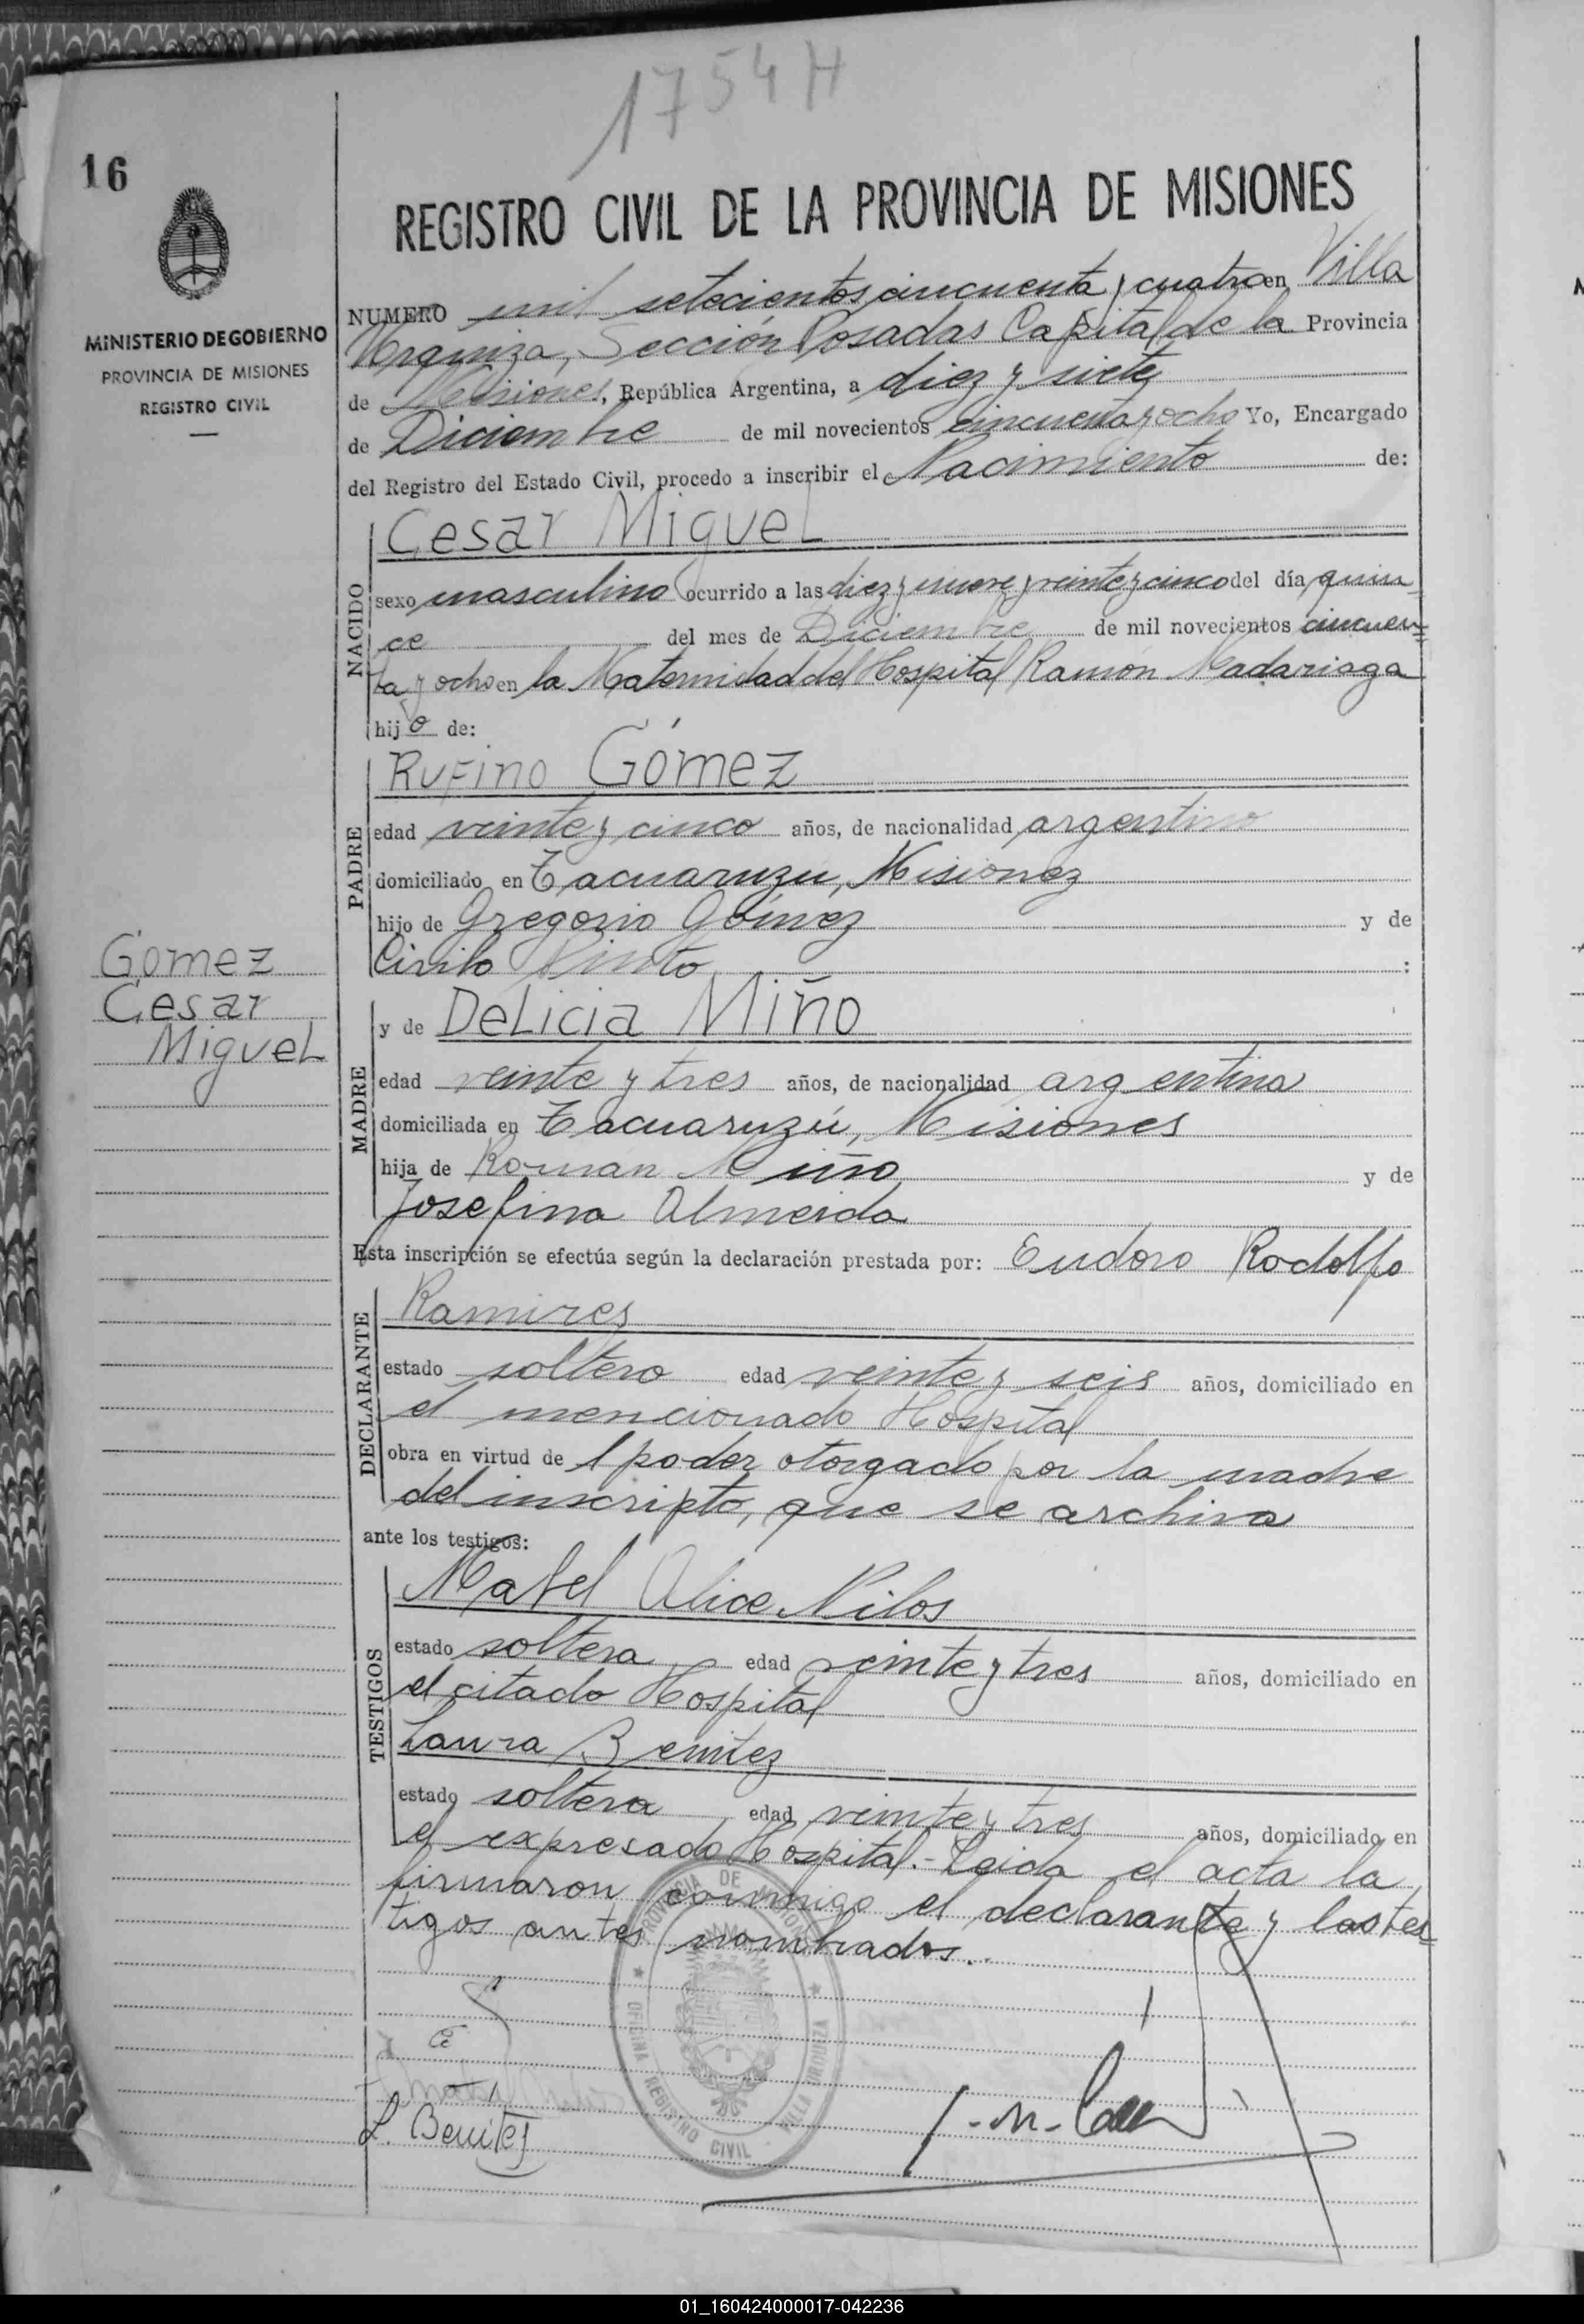 1754H
16
REGISTRO CIVIL DE LA PROVINCIA DE MISIONES
MINISTERIO DE GOBIERNO
PROVINCIA DE MISIONES
REGISTRO CIVIL
NUMERO mil setecientos cincuenta y cuatro en Villa
Urquiza, Sección Posadas Capital de la Provincia
de Misiones, República Argentina, a diez y siete
de Diciembre de mil novecientos cincuenta y ocho Yo, Encargado
del Registro del Estado Civil, procedo a inscribir el Nacimiento de:
NACIDO
Cesar Miguel
sexo masculino ocurrido a las diez y nueve y veinte y cinco del día quin
ce del mes de Diciembre de mil novecientos cincuen=
ta y ocho en la Maternidad del Hospital Ramón Madariaga
hijo de:
PADRE
Rufino Gómez
edad veinte y cinco años, de nacionalidad argentino
domiciliado en Tacuaruzú, Misiones
hijo de Gregorio Gómez y de
Cirila Pinto :
Gomez
Cesar
Miguel
MADRE
y de Delicia Miño
edad veinte y tres años, de nacionalidad argentina
domiciliada en Tacuaruzú, Misiones
hija de Roman Miño y de
Josefina Almeida
Esta inscripción se efectúa según la declaración prestada por: Eudoro Rodolfo
DECLARANTE
Ramires
estado soltero edad veinte y seis años, domiciliado en
el mencionado Hospital
obra en virtud de l poder otorgado por la madre
del inscripto, que se archiva
ante los testigos:
TESTIGOS
Mabel Alice Nilos
estado soltera edad veinte y tres años, domiciliado en
el citado Hospital
Laura Benitez
estado soltera edad veinte y tres años, domiciliado en
el expresado Hospital.- Leida el acta la
firmaron conmigo el declarante y los tes=
tigos antes nombrados.
PROVINCIA DE MISIONES
OFICINA REGISTRO CIVIL VILLA URQUIZA
L. Benitez
01_160424000017-042236